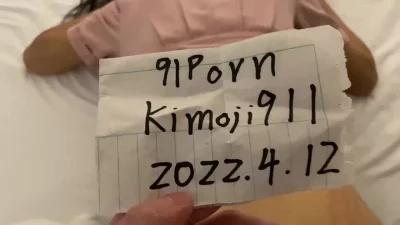 91Porn
Kimoji911
2022.4.12